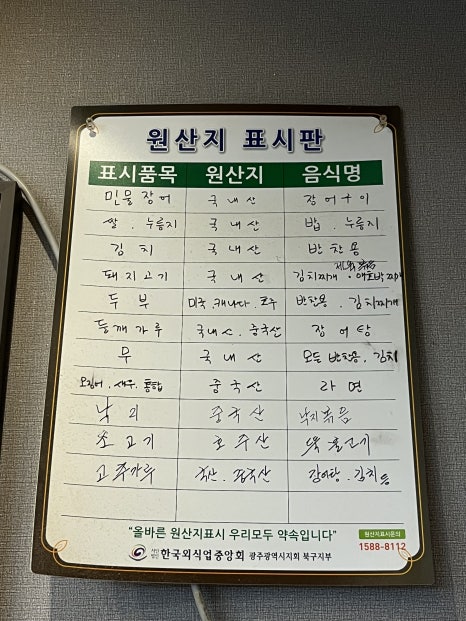 원산지 표시판
표시품목 원산지 음식명
민물장어 국내산 장어구이
쌀. 누룽지 국내산 밥. 누룽지
김치 국내산 반찬용
제육볶음
돼지고기 국내산 김치찌개. 애호박찌개
두부 미국. 캐나다. 호주 반찬용. 김치찌개
들깨가루 국내산. 중국산 장어탕
무 국내산 모든 반찬용. 김치
오징어. 새우. 홍합 중국산 라면
낙지 중국산 낙지볶음
소고기 호주산 뚝불고기
고추가루 중국산 장어탕. 김치등
"올바른 원산지표시 우리모두 약속입니다"
원산지표시문의
1588-8112
사단법인 한국외식업중앙회 광주광역시지회 북구지부